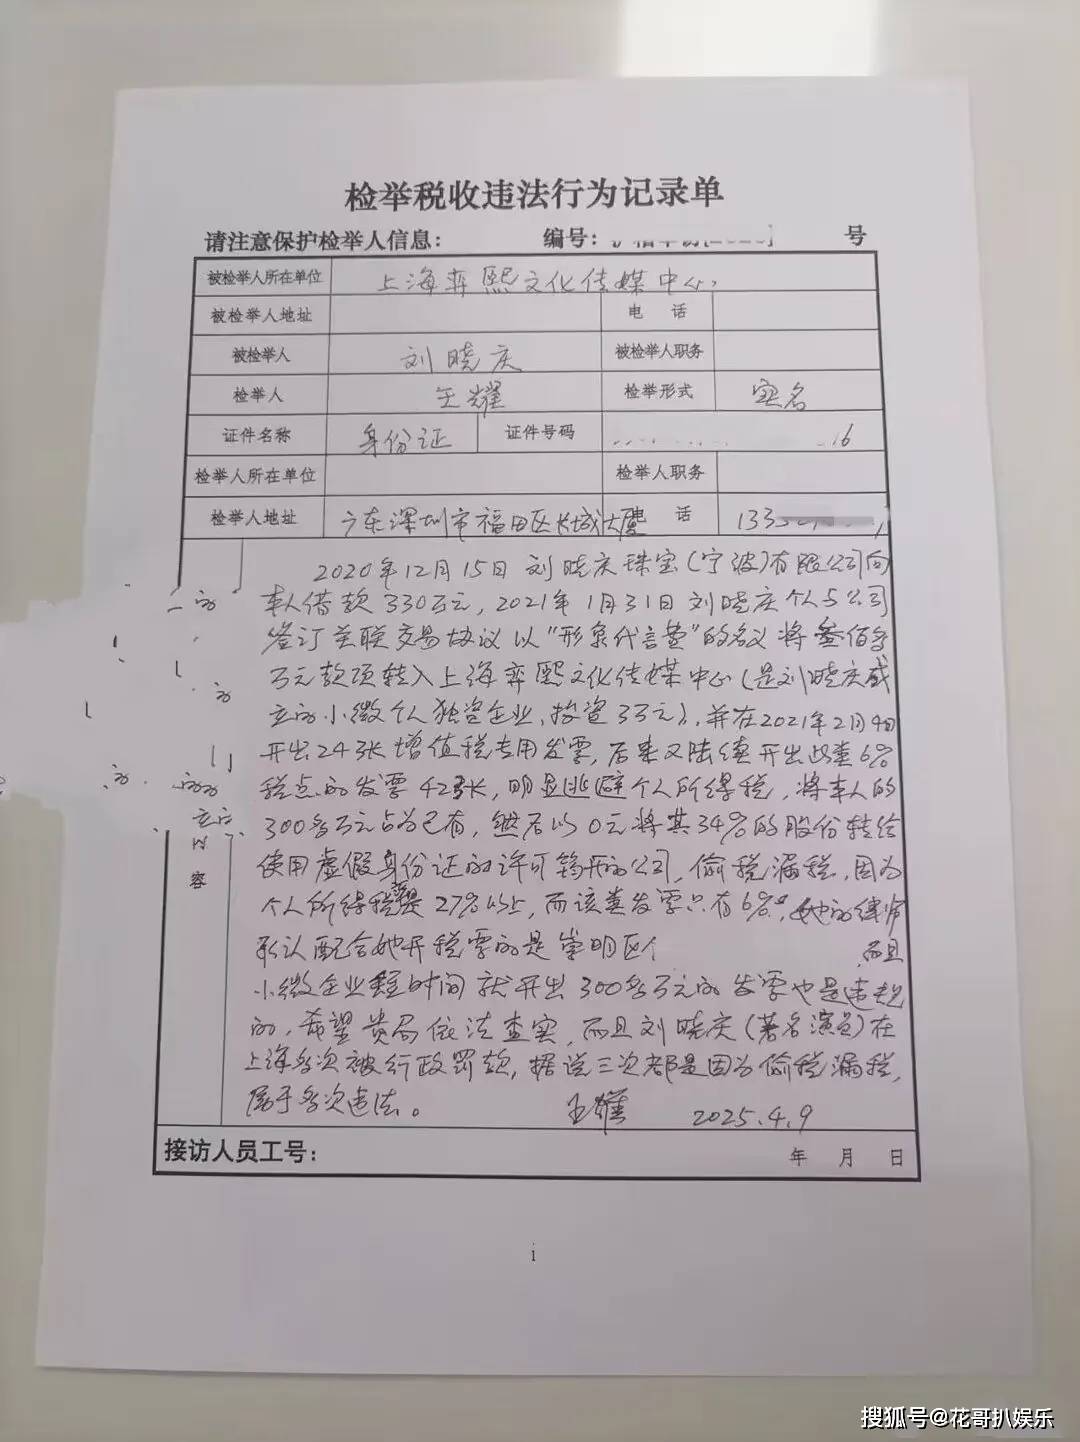 检举税收违法行为记录单
请注意保护检举人信息： 编号： 号
被检举人所在单位 上海弈熙文化传媒中心
被检举人地址 电 话
被检举人 刘晓庆 被检举人职务
检举人 王耀 检举形式 实名
证件名称 身份证 证件号码 16
检举人所在单位 检举人职务
检举人地址 广东深圳市福田区长城大厦 电 话 133
2020年12月15日刘晓庆珠宝(宁波)有限公司向
本人借款330万元，2021年1月31日刘晓庆个人与公司
签订关联交易协议以“形象代言费”的名义将叁佰多
万元款项转入上海弈熙文化传媒中心(是刘晓庆成
立的小微个人独资企业，投资3万元)，并在2021年2月4日
开出24张增值税专用发票，后来又陆续开出此类6%
税点的发票42张，明显逃避个人所得税，将本人的
300多万元占为己有，然后以0元将其34%的股份转给
使用虚假身份证的许可筠开的公司，偷税漏税，因为
个人所得税是27%以上，而该类发票只有6%。她的律师
承认配合她开税票的是崇明区个 而且
小微企业短时间就开出300多万元的发票也是违规
的，希望贵局依法查实，而且刘晓庆(著名演员)在
上海多次被行政罚款，据说三次都是因为偷税漏税，
属于多次违法。 王耀 2025.4.9
容
接访人员工号： 年 月 日
1
搜狐号@花哥扒娱乐